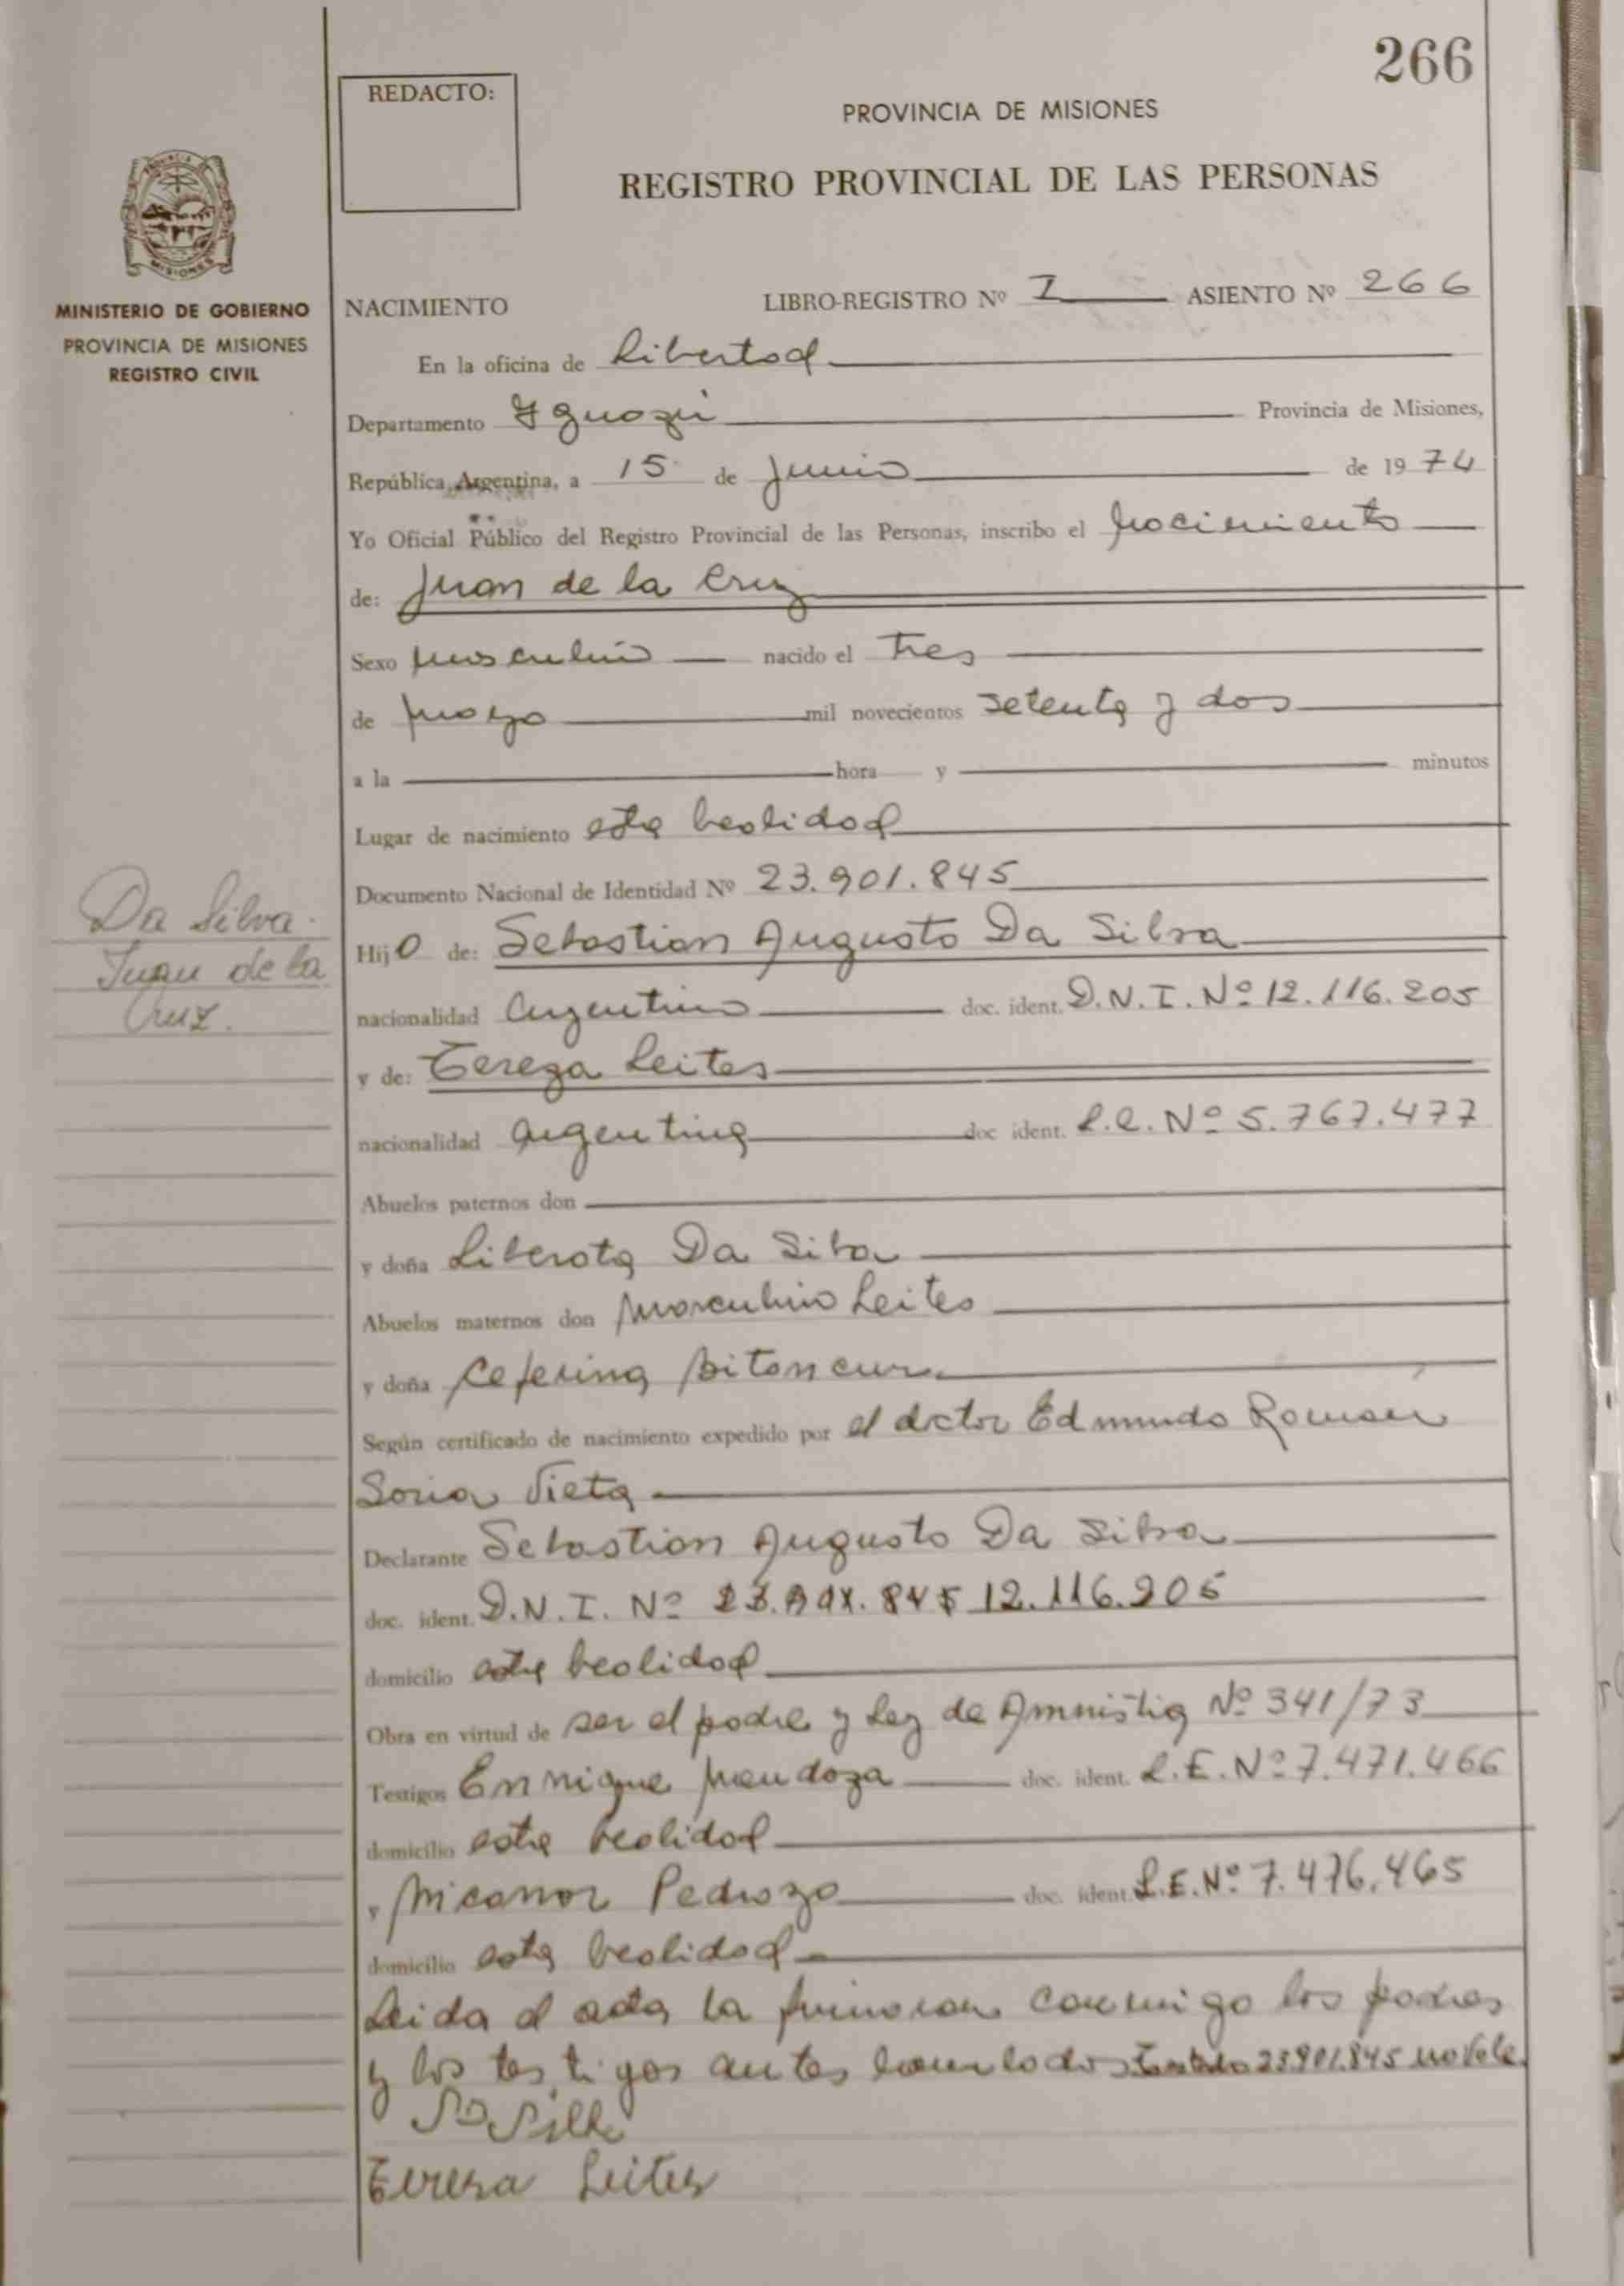 266
REDACTO:
PROVINCIA DE MISIONES
REGISTRO PROVINCIAL DE LAS PERSONAS
MISIONES
MINISTERIO DE GOBIERNO
PROVINCIA DE MISIONES
REGISTRO CIVIL
NACIMIENTO LIBRO-REGISTRO Nº I ASIENTO Nº 266
En la oficina de Libertad
Departamento Iguazú Provincia de Misiones,
República Argentina, a 15 de junio de 1974
Yo Oficial Público del Registro Provincial de las Personas, inscribo el nacimiento
de: Juan de la Cruz
Sexo masculino nacido el tres
de mayo mil novecientos setenta y dos
a la hora y minutos
Lugar de nacimiento esta localidad
Documento Nacional de Identidad Nº 23.901.845
Da Silva
Juan de la
Cruz.
Hijo de: Sebastian Augusto Da Silva
nacionalidad argentino doc. ident. D.N.I. Nº 12.116.205
y de: Tereza Leites
nacionalidad argentina doc ident. L.C. Nº 5.767.477
Abuelos paternos don
y doña Liberata Da Silva
Abuelos maternos don Marculino Leites
y doña Ceferina Bitancur
Según certificado de nacimiento expedido por el doctor Edmundo Roman
Soria Vieta
Declarante Sebastian Augusto Da Silva
doc. ident. D.N.I. Nº 23.901.845 12.116.205
domicilio esta localidad
Obra en virtud de ser el padre y Ley de Amnistia Nº 341/73
Testigos Enrrique Mendoza doc. ident. L.E. Nº 7.471.466
domicilio esta localidad
y Nicanor Pedrozo doc. ident. L.E. Nº 7.476.465
domicilio esta localidad
Leida el acta la firmaran conmigo los padres
y los testigos antes Testado 23.901.845 no vale.
Teresa Leites